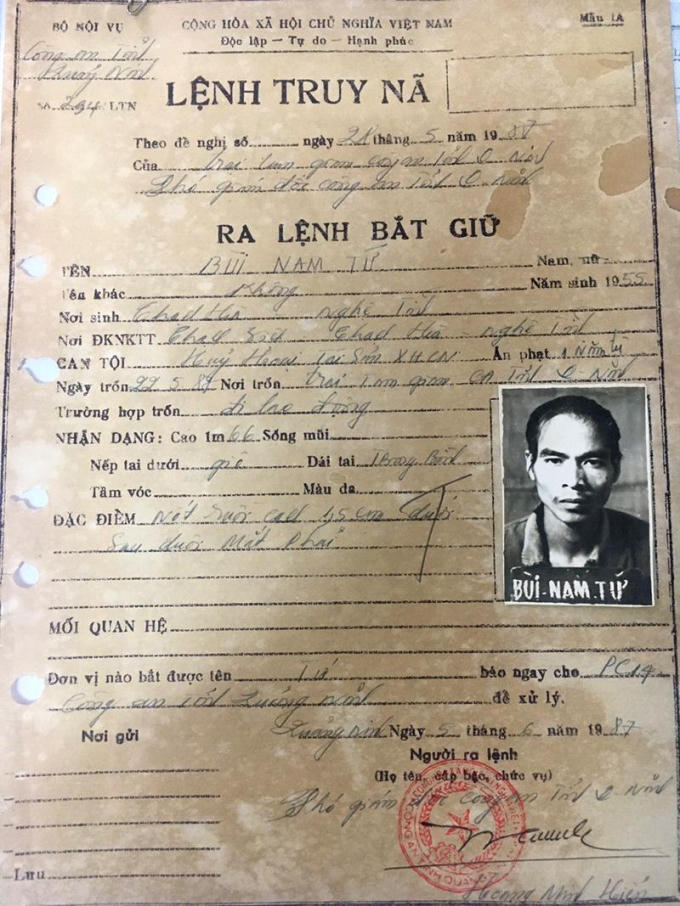 BỘ NỘI VỤ
CỘNG HÒA XÃ HỘI CHỦ NGHĨA VIỆT NAM
Mẫu 1A
Công an Tỉnh
Quảng Ninh
Độc lập — Tự do — Hạnh phúc
Số LTN
LỆNH TRUY NÃ
Theo đề nghị số ngày 28 tháng 5 năm 1987
Của trại tạm giam công an Tỉnh Q. Ninh
Phó giám đốc công an Tỉnh Q. Ninh
RA LỆNH BẮT GIỮ
TÊN BÙI NAM TƯ Nam, nữ
Tên khác Không Năm sinh 1955
Nơi sinh Nghệ Tĩnh
Nơi ĐKNKTT Nghệ Tĩnh
CAN TỘI Huỷ Hoại Tài Sản XHCN Án phạt 1 Năm tù
Ngày trốn 22.5.87 Nơi trốn trại Tạm giam CA Tỉnh Q. Ninh
Trường hợp trốn Đi lao động
NHẬN DẠNG: Cao 1m 66 Sống mũi
Nếp tai dưới Dái tai
Tầm vóc Màu da
ĐẶC ĐIỂM Nốt Ruồi Cách 1,5 cm dưới
Sau đuôi Mắt Phải
BÙI-NAM TƯ
MỐI QUAN HỆ
Đơn vị nào bắt được tên Tư báo ngay cho PC14
Công an Tỉnh Quảng Ninh để xử lý.
Nơi gửi
Quảng Ninh Ngày 5 tháng 6 năm 1987
Người ra lệnh
(Họ tên, cấp bậc, chức vụ)
Phó giám đốc công an Tỉnh Q. Ninh
Lưu